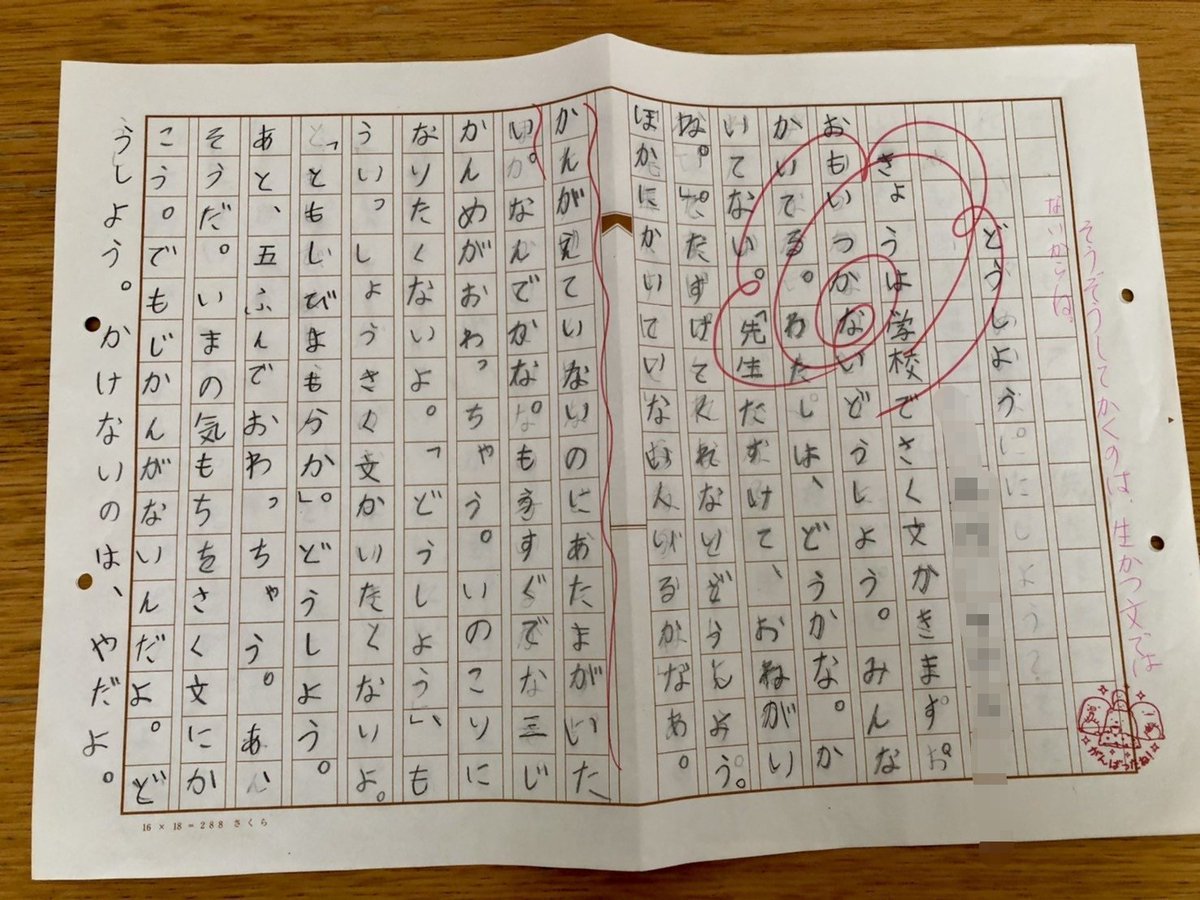 そうぞうしてかくのは、生かつ文では
ないからね。
がんばったね!
どうしよう
きょうは学校でさく文かきます。
おもいつかないどうしよう。みんな
かいてる。わたしは、どうかな。か
いてない。「先生たすけて、おねがい
ね。」たすけてくれないどうしよう。
ほかにかいていない人いるかなあ。
かんがえていないのにあたまがいた
い。なんでかな。もうすぐで三じ
かんめがおわっちゃう。いのこりに
なりたくないよ。「どうしよう」、も
ういっしょうさく文かいたくないよ。
どうしよう。
あと、五ふんでおわっちゃう。あ、
そうだ。いまの気もちをさく文にか
こう。でもじかんがないんだよ。ど
うしよう。かけないのは、やだよ。
16 × 18 = 288 さくら